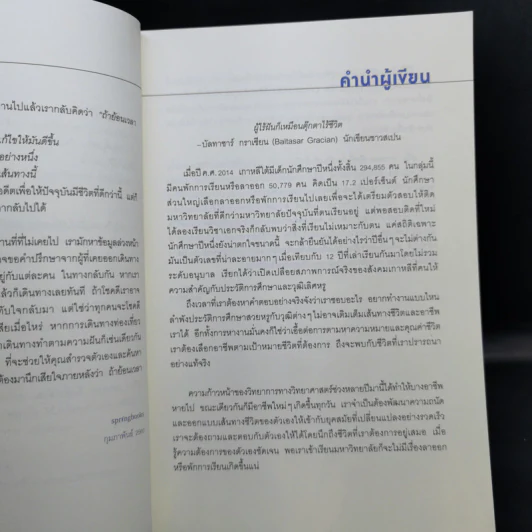 านไปแล้วเรากลับคิดว่า "ถ้าย้อนเวลา
ก้ไขให้มันดีขึ้น
อย่างหนึ่ง
เส้นทางนี้
ดีตเพื่อให้ปัจจุบันมีชีวิตที่ดีกว่านี้ แต่ก็
ากลับไปได้
านที่ที่ไม่เคยไป เรามักหาข้อมูลล่วงหน้า
าจขอคำปรึกษาจากผู้ที่เคยออกเดินทาง
ยู่กับแต่ละคน ในทางกลับกัน หากเรา
ล้วก็เดินทางเลยทันที ถ้าโชคดีเราอาจ
ทับใจกลับมา แต่ใช่ว่าทุกคนจะโชคดี
สียเมื่อไหร่ หากการเดินทางท่องเที่ยว
าเดินทางทำตามความฝันก็เช่นเดียวกัน
ที่จะช่วยให้คุณสำรวจตัวเองและค้นหา
ต้องมานึกเสียใจภายหลังว่า ถ้าย้อนเวลา
springbooks
กุมภาพันธ์
คำนำผู้เขียน
ผู้ไร้ฝันก็เหมือนตุ๊กตาไร้ชีวิต
–บัลทาซาร์ กราเซียน (Baltasar Gracian) นักเขียนชาวสเปน
เมื่อปี ค.ศ. 2014 เกาหลีใต้มีเด็กนักศึกษาปีหนึ่งทั้งสิ้น 294,855 คน ในกลุ่มนี้
มีคนพักการเรียนหรือลาออก 50,779 คน คิดเป็น 17.2 เปอร์เซ็นต์ นักศึกษา
ส่วนใหญ่เลือกลาออกหรือพักการเรียนไปเลยเพื่อจะได้เตรียมตัวสอบให้ติด
มหาวิทยาลัยที่ดีกว่ามหาวิทยาลัยปัจจุบันที่ตนเรียนอยู่ แต่พอสอบติดที่ใหม่
ได้ลองเรียนวิชาเอกจริงก็กลับพบว่าสิ่งที่เรียนไม่เหมาะกับตน แค่สถิติเฉพาะ
นักศึกษาปีหนึ่งยังน่าตกใจขนาดนี้ จะกล้ายืนยันได้อย่างไรว่าปีอื่นๆ จะไม่ต่างกัน
มันเป็นตัวเลขที่น่าละอายมากๆ เมื่อเทียบกับ 12 ปีที่เล่าเรียนกันมาโดยไม่รวม
ระดับอนุบาล เรียกได้ว่าเปิดเปลือยสภาพการณ์จริงของสังคมเกาหลีที่คนให้
ความสำคัญกับประวัติการศึกษาและวุฒิเสียหรู
ถึงเวลาที่เราต้องหาคำตอบอย่างจริงจังว่าเราชอบอะไร อยากทำงานแบบไหน
ลำพังประวัติการศึกษาสวยหรูกับวุฒิต่างๆ ไม่อาจเติมเต็มเส้นทางชีวิตและอาชีพ
เราได้ อีกทั้งการหางานมั่นคงก็ใช่ว่าเอื้อต่อการตามหาความหมายและคุณค่าชีวิต
เราต้องเลือกอาชีพตามเป้าหมายชีวิตที่ต้องการ ถึงจะพบกับชีวิตที่เราปรารถนา
อย่างแท้จริง
ความก้าวหน้าของวิทยาการทางวิทยาศาสตร์ช่วงหลายปีมานี้ได้ทำให้บางอาชีพ
หายไป ขณะเดียวกันก็มีอาชีพใหม่ๆ เกิดขึ้นทุกวัน เราจำเป็นต้องพัฒนาความถนัด
และออกแบบเส้นทางชีวิตของตัวเองให้เข้ากับยุคสมัยที่เปลี่ยนแปลงอย่างรวดเร็ว
เราจะต้องถามและตอบกับตัวเองให้ได้โดยนึกถึงชีวิตที่เราต้องการอยู่เสมอ เมื่อ
รู้ความต้องการของตัวเองชัดเจน พอเราเข้าเรียนมหาวิทยาลัยก็จะไม่มีเรื่องลาออก
หรือพักการเรียนเกิดขึ้นแน่